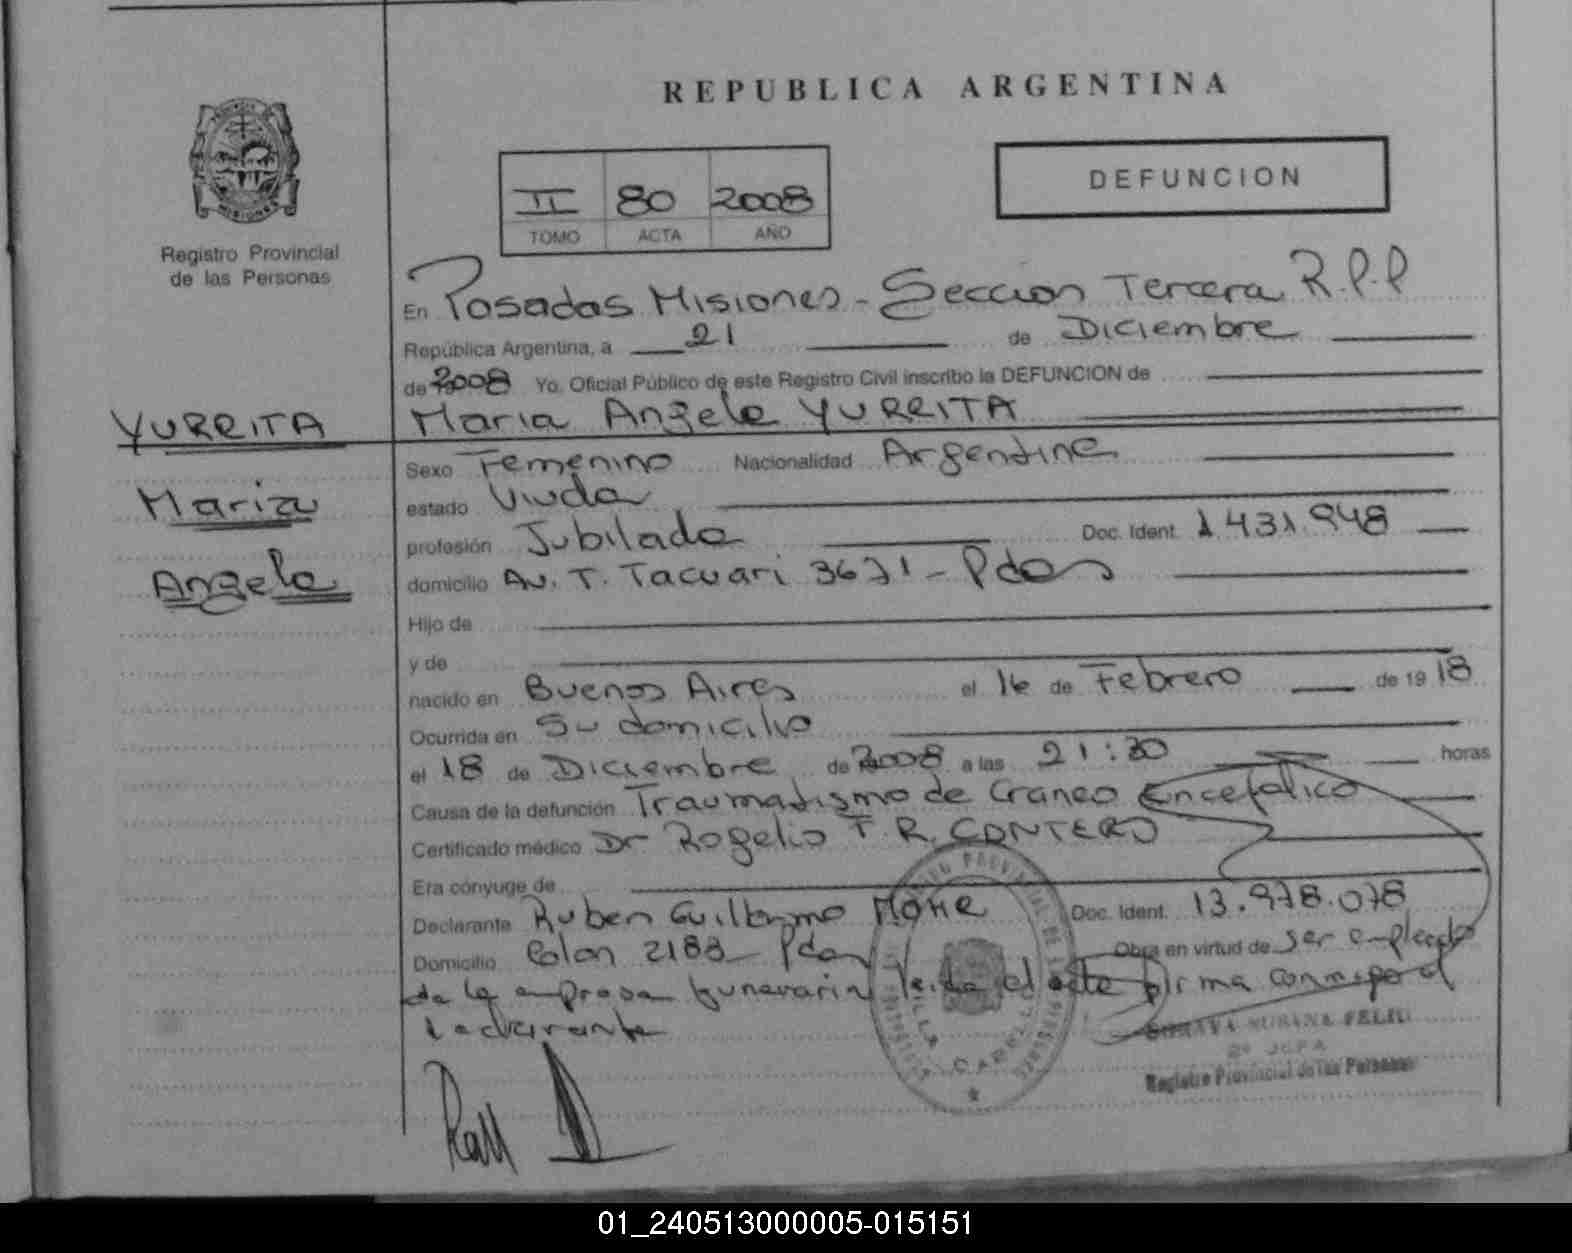 REPUBLICA ARGENTINA
MISIONES
Registro Provincial
de las Personas
II 80 2008
TOMO ACTA AÑO
DEFUNCION
En Posadas Misiones - Seccion Tercera R.P.P
República Argentina, a 21 de Diciembre
de 2008 Yo, Oficial Público de este Registro Civil inscribo la DEFUNCION de
YURRITA
Maria
Angela
Maria Angela YURRITA
Sexo Femenino Nacionalidad Argentina
estado Viuda
profesión Jubilada Doc. Ident. 1.431.948
domicilio Av. T. Tacuari 3671 - Pdas
Hijo de
y de
nacido en Buenos Aires el 16 de Febrero de 1918
Ocurrida en Su domicilio
el 18 de Diciembre de 2008 a las 21:30 horas
Causa de la defunción Traumatismo de Craneo Encefalico
Certificado médico Dr Rogelio F. R. CONTERO
Era cónyuge de
Declarante Ruben Guillermo Doc. Ident. 13.978.078
Domicilio Colon 2183 - Pdas Obra en virtud de ser empleado
de la empresa funeraria Leida el acta firma conmigo el
declarante
FELIU
2º JEFA
Registro Provincial de las Personas
01_240513000005-015151